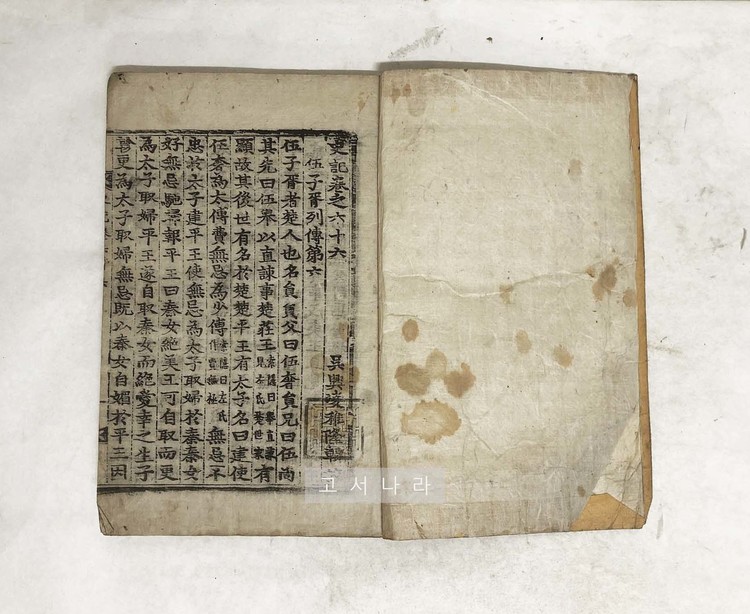 史記卷之六十六
伍子胥列傳第六
吳興凌稚隆
伍子胥者楚人也名員員父曰伍奢員兄曰伍尚
其先曰伍擧以直諫事楚莊王有
顯故其後世有名於楚楚平王有太子名曰建使
伍奢為太傅費無忌為少傅無忌不
忠於太子建平王使無忌為太子取婦於秦秦女
好無忌馳歸報平王曰秦女絶美王可自取而更
為太子取婦平王遂自取秦女而絶愛幸之生子
更為太子取婦無忌既以秦女自媚於平王因
고서나라